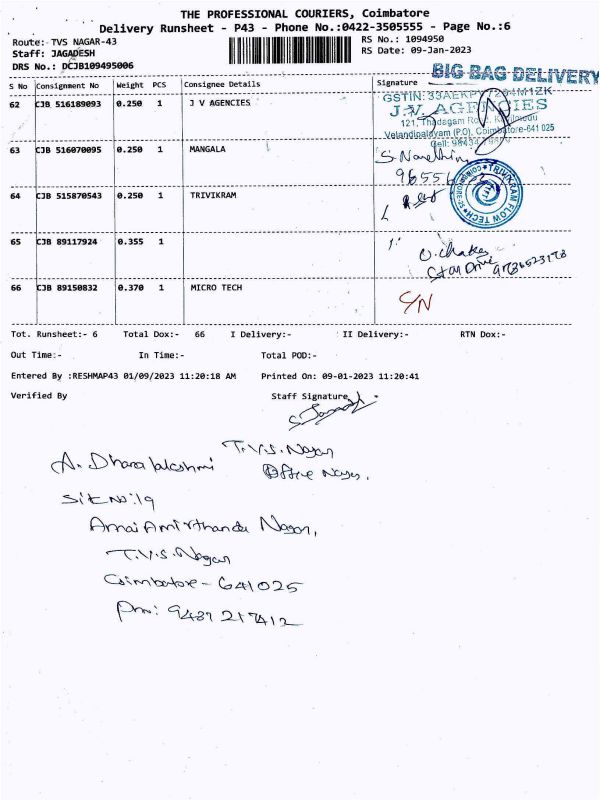 THE PROFESSIONAL COURIERS, Coimbatore
Delivery Runsheet - P43 - Phone No.:0422-3505555 - Page No.:6
Route: TVS NAGAR-43
RS No.: 1094950
Staff: JAGADESH
RS Date: 09-Jan-2023
DRS No.: DCJB109495006
BIG BAG DELIVERY
S No Consignment No Weight PCS Consignee Details Signature
62 CJB 516189093 0.250 1 J V AGENCIES
GSTIN: 33AEKP
J.V. AGENCIES
121, Thadagam Road,
Velandipalayam (P.O), Coimbatore-641 025
Cell:
63 CJB 516070095 0.250 1 MANGALA
S.
96556
64 CJB 515870543 0.250 1 TRIVIKRAM
TRIVIKRAM FLOW TECH
65 CJB 89117924 0.355 1
66 CJB 89150832 0.370 1 MICRO TECH
C/N
Tot. Runsheet:- 6 Total Dox:- 66 I Delivery:- II Delivery:- RTN Dox:-
Out Time:- In Time:- Total POD:-
Entered By :RESHMAP43 01/09/2023 11:20:18 AM Printed On: 09-01-2023 11:20:41
Verified By Staff Signature
T.V.S. Nagar
A. Dhanalakshmi
Nagar.
Sit No: 19
Nagar,
T.V.S. Nagar
Coimbatore - 641025
Ph: 9487 217412